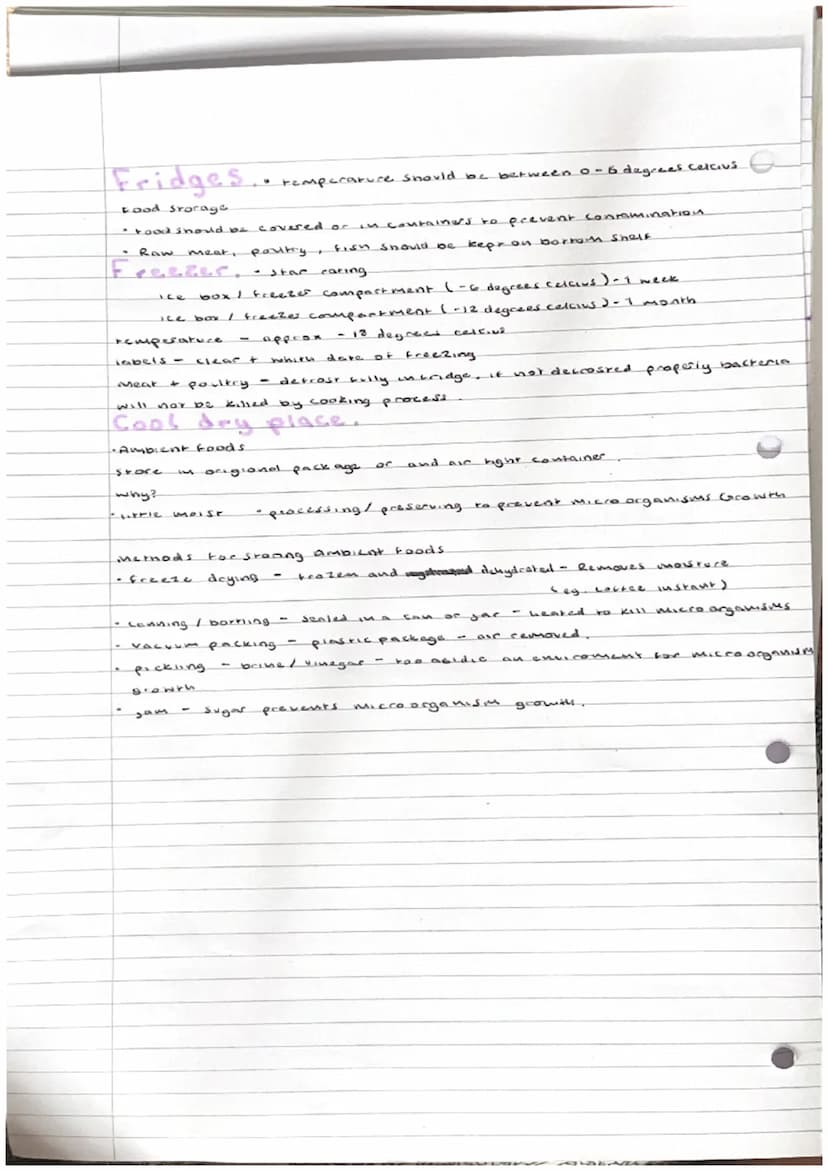 Fridges. • temperature should be between 0-5 degrees celcius
food storage
• food should be covered or in containers to prevent contamination
• Raw meat, poultry, fish should be kept on bottom shelf
Freezer. • star rating
ice box / freezer compartment (-6 degrees celcius) - 1 week
ice box / freezer compartment (-12 degrees celcius) - 1 month
temperature - approx -18 degrees celcius
labels - clear + which date of freezing
meat + poultry - defrost fully in fridge, if not defrosted properly bacteria
will not be killed by cooking process.
Cool dry place.
• Ambient foods
store in origional package or and air tight container.
why?
• little moist • processing / preserving to prevent micro organisms Growth
methods for storing ambient foods
• freeze drying - frozen and dehydrated - Removes moisture
(eg. coffee instant)
• canning / bottling - sealed in a can or jar - heated to kill micro organisms
• vacuum packing - plastic package - air removed.
• pickling - brine / vinegar - too acidic an enviroment for micro organism
growth
• jam - sugar prevents micro organism growth.